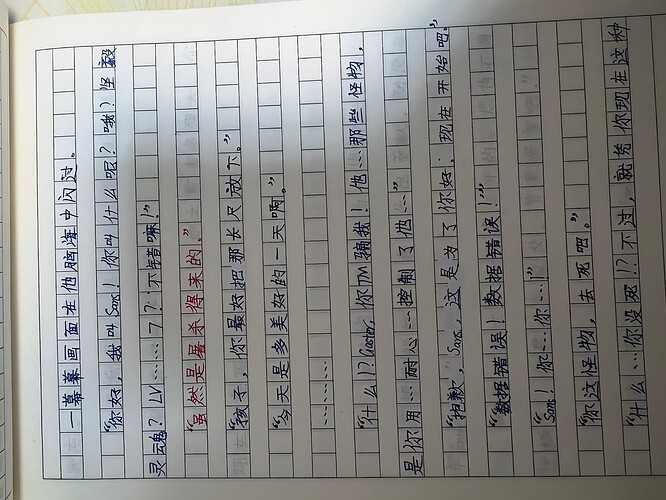 一幕幕画面在他脑海中闪过。
“你好，我叫Sans！你叫什么呢？哦？坚毅
灵魂？LV……7？不错嘛！”
“虽然是屠杀得来的。”
“孩子，你最好把那长尺放下。”
“今天是多美好的一天啊。”
………
“什么！？Gaster，你TM骗我！他…那些怪物，
是你用…耐心…控制了他…”
“抱歉，Sans，这是为了你好，现在开始吧。”
“数据错误！数据错误！”
“Sans！你…你…！”
“你这怪物，去死吧。”
“什么…你没死！？不过，就凭你现在这种